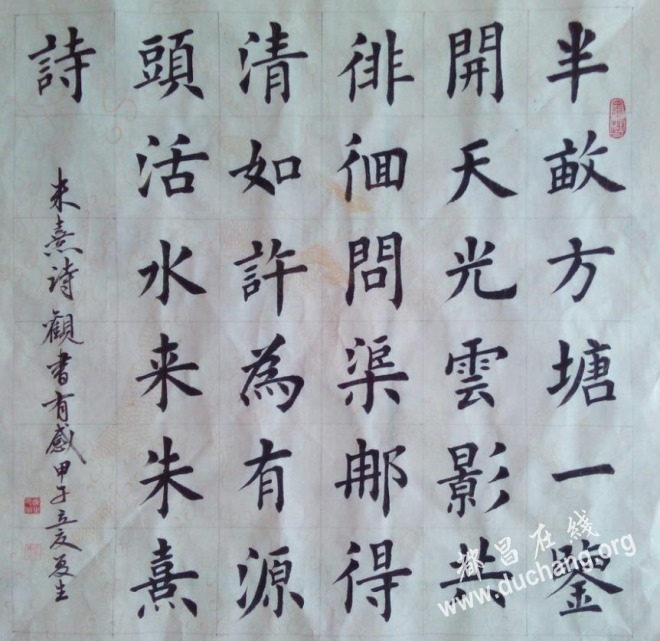 半畝方塘一鑒
開天光雲影共
徘徊問渠那得
清如許為有源
頭活水来朱熹
詩
朱熹诗觀書有感甲子立夏
都昌在线
www.duchang.org